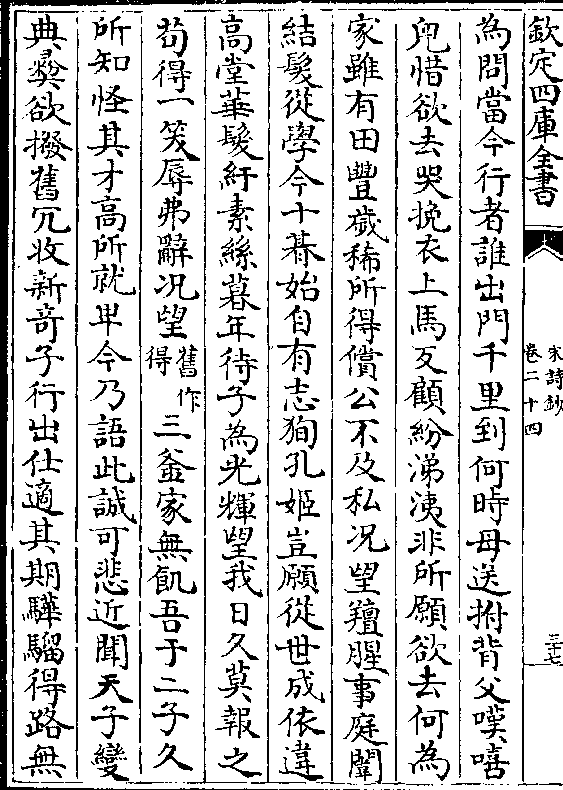 欽定四庫全書
宋詩鈔
卷二十四
三十七
為問當今行者誰出門千里到何時母送拊背父嘆嘻
兒惜欲去哭挽衣上馬反顧紛涕洟非所願欲去何為
家雖有田豐歲稀所得償公不及私况望羶腥事庭闈
結髮從學今十朞始自有志狥孔姬豈願從世成依違
高堂華髮紆素絲暮年待子為光輝望我日久莫報之
苟得一笑辱弗辭况望舊作得三釜家無飢吾于二子久
所知怪其才高所就卑今乃語此誠可悲近聞天子變
典彛欲撥舊冗收新奇子行出仕適其期驊騮得路無